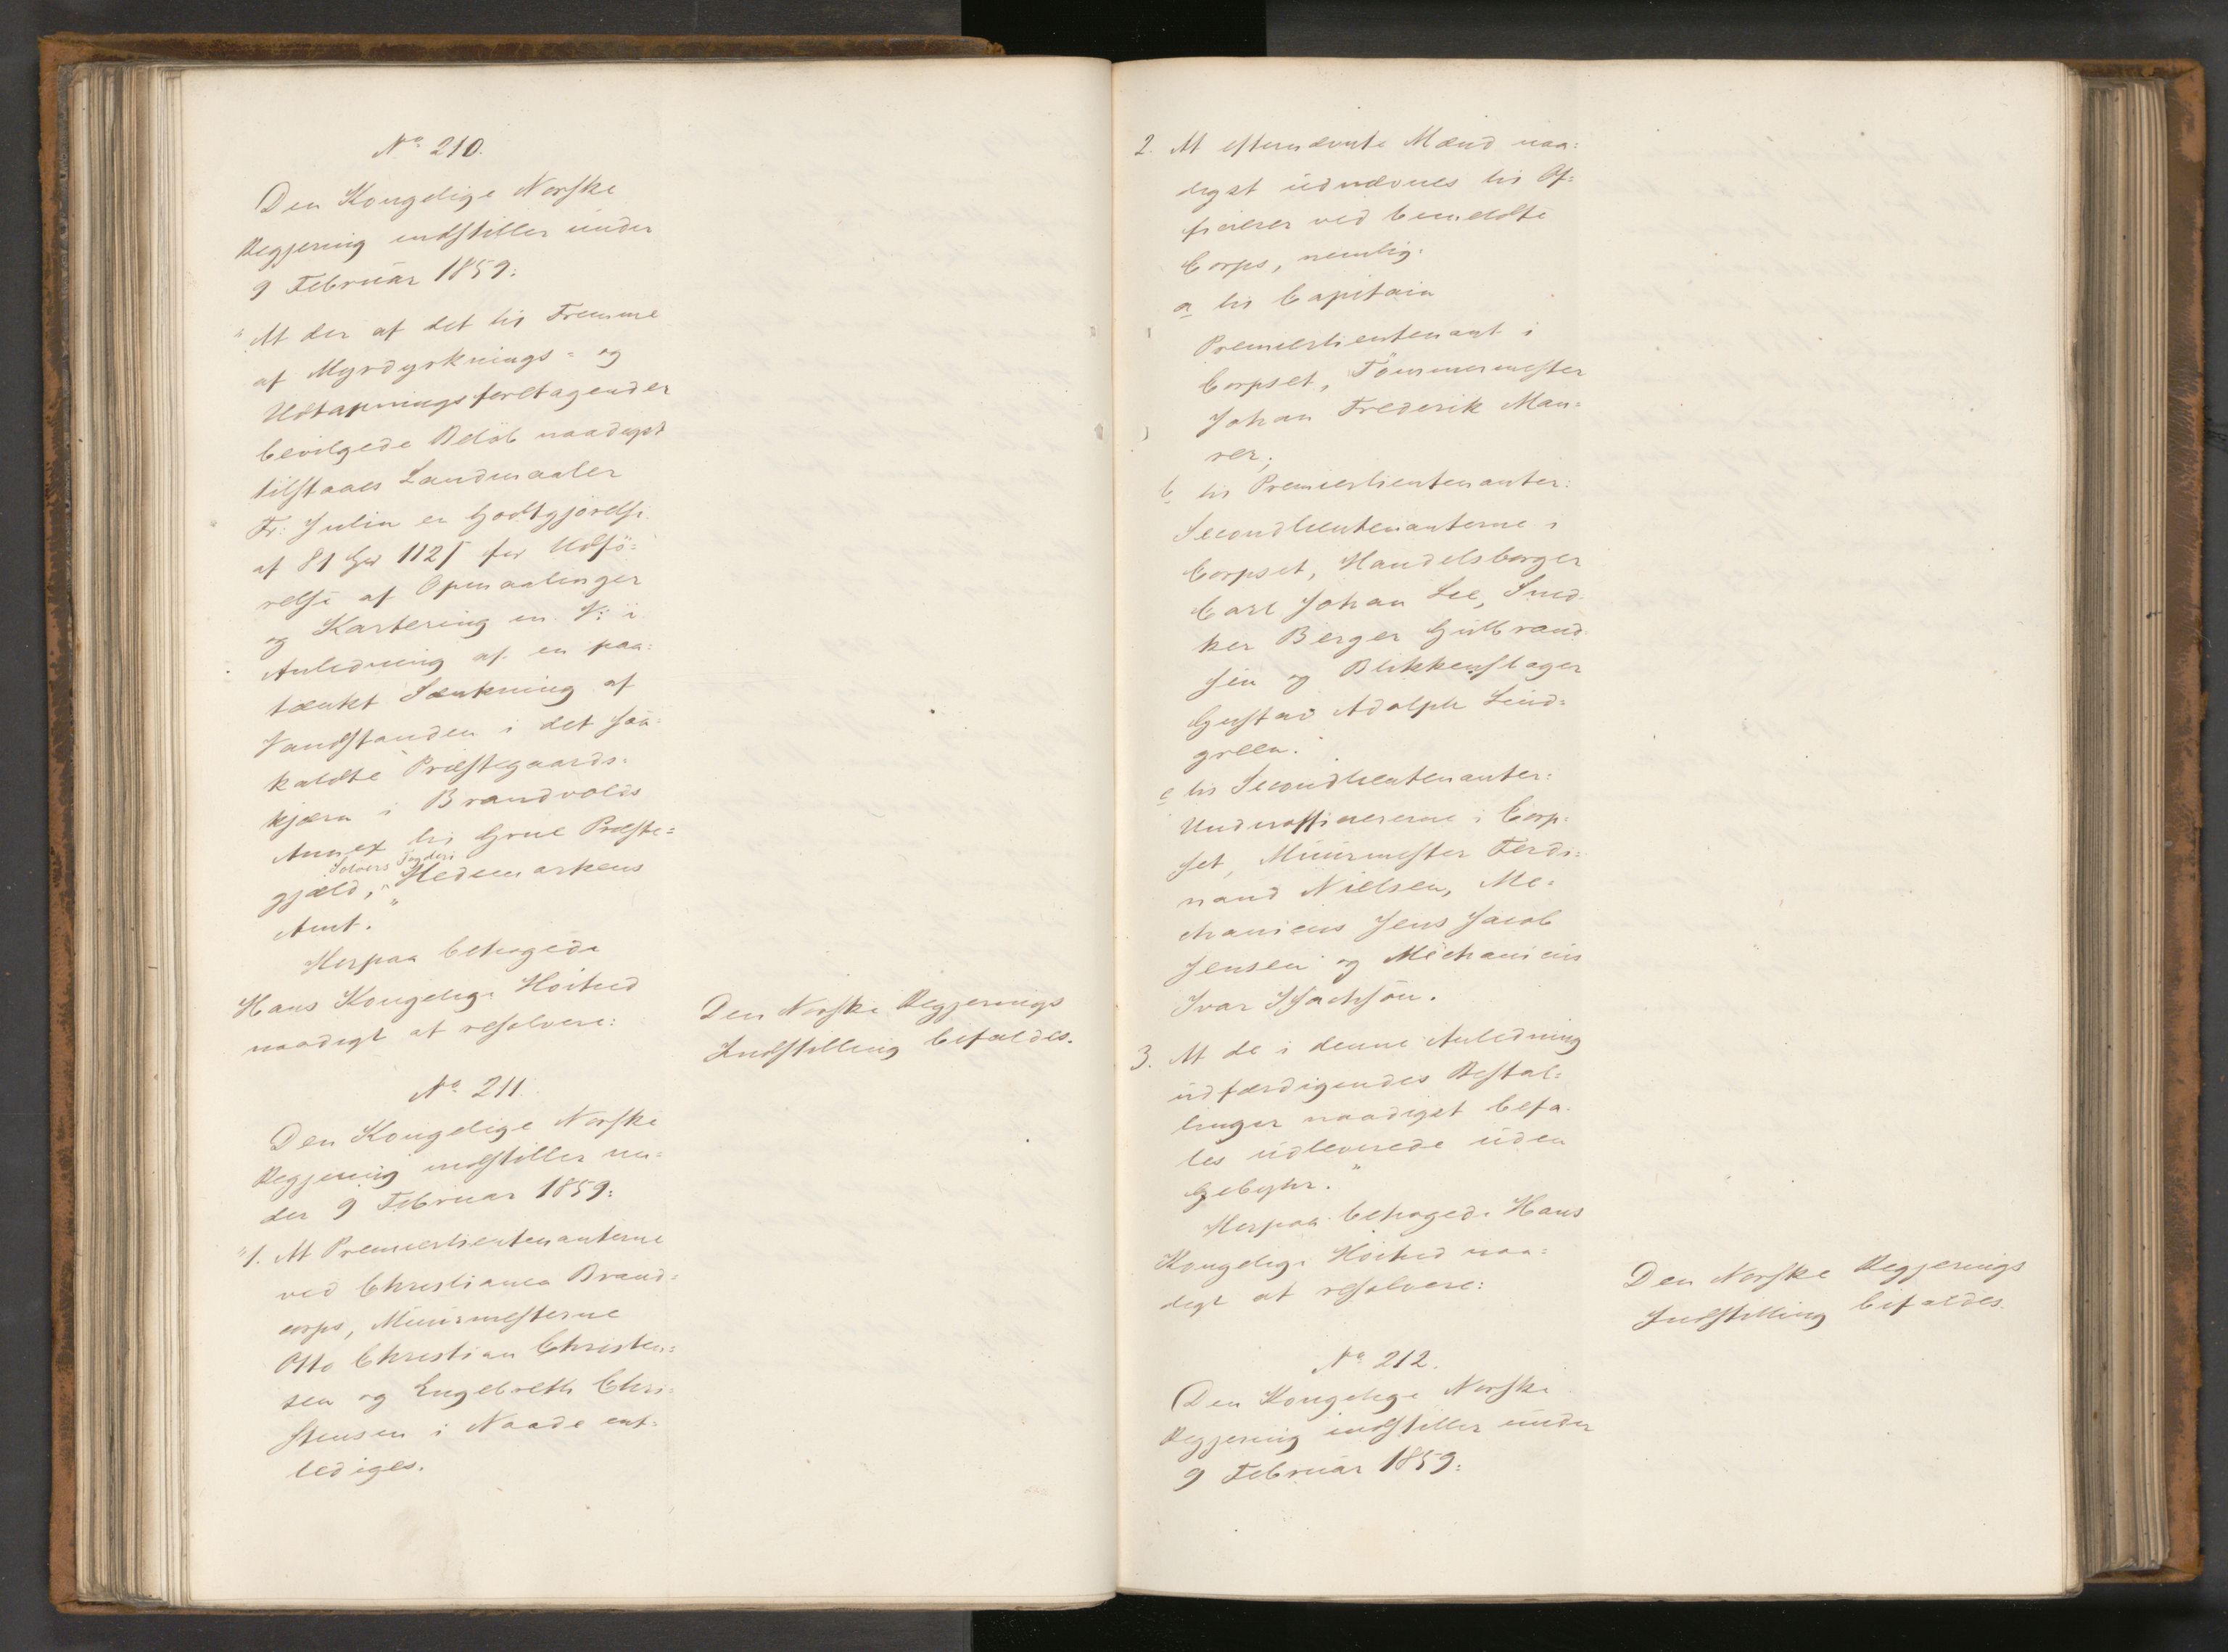 No 210.
Den Kongelige Norske
Regjering indstiller under
9 Februar 1859:
"At der af det til Fremme
af Myrdyrknings- og
Udtapningsforetagender
bevilgede Beløb naadigst
tilstaaes Landmaaler
Fr. Julin en Godtgjørelse
af 81 Spd 112 ß for Udfö=
relse af Opmaalinger
og Kartering m. V. i
Anledning af en paa=
tænkt Sænkning af
Vandstanden i det saa=
kaldte Præstegaards=
kjærn i Brandvolds
Annex til Grue Præste=
gjeld, Solørs Fogderi Hedemarkens
Amt."
Herpaa behagede
Hans Kongelige Höihed
naadigt at resolvere:
Den Norske Regjerings
Indstilling bifaldes.
No 211.
Den Kongelige Norske
Regjering indstiller un=
der 9 Februar 1859:
"1. At Premierlieutenanterne
ved Christiania Brand=
corps, Muurmesterne
Otto Christian Christen=
sen og Engebreth Chri=
stensen i Naade ent=
lediges.
2. At efternævnte Mænd naa=
digst udnævnes til Of=
ficierer ved bemeldte
Corps, nemlig:
a til Capitain
Premierlieutenant i
Corpset, Tömmermester
Johan Frederik Mau=
rer;
b til Premierlieutenanter:
Secondlieutenanterne i
Corpset, Handelsborger
Carl Johan Lee, Sned=
ker Berger Gulbrand=
sen og Blikkenslager
Gustav Adolph Lind=
green.
c til Secondlieutenanter:
Underofficiererne i Corp=
set, Muurmester Ferdi=
nand Nielsen, Me=
chanicus Jens Jacob
Jensen og Mechanicus
Ivar Isachsön.
3. At de i denne Anledning
udfærdigendes Bestal=
linger naadigst befa=
les udleverede uden
Gebyhr."
Herpaa behagede Hans
Kongelige Höihed naa=
digt at resolvere:
Den Norske Regjerings
Indstilling bifaldes.
No 212.
Den Kongelige Norske
Regjering indstiller under
9 Februar 1859: